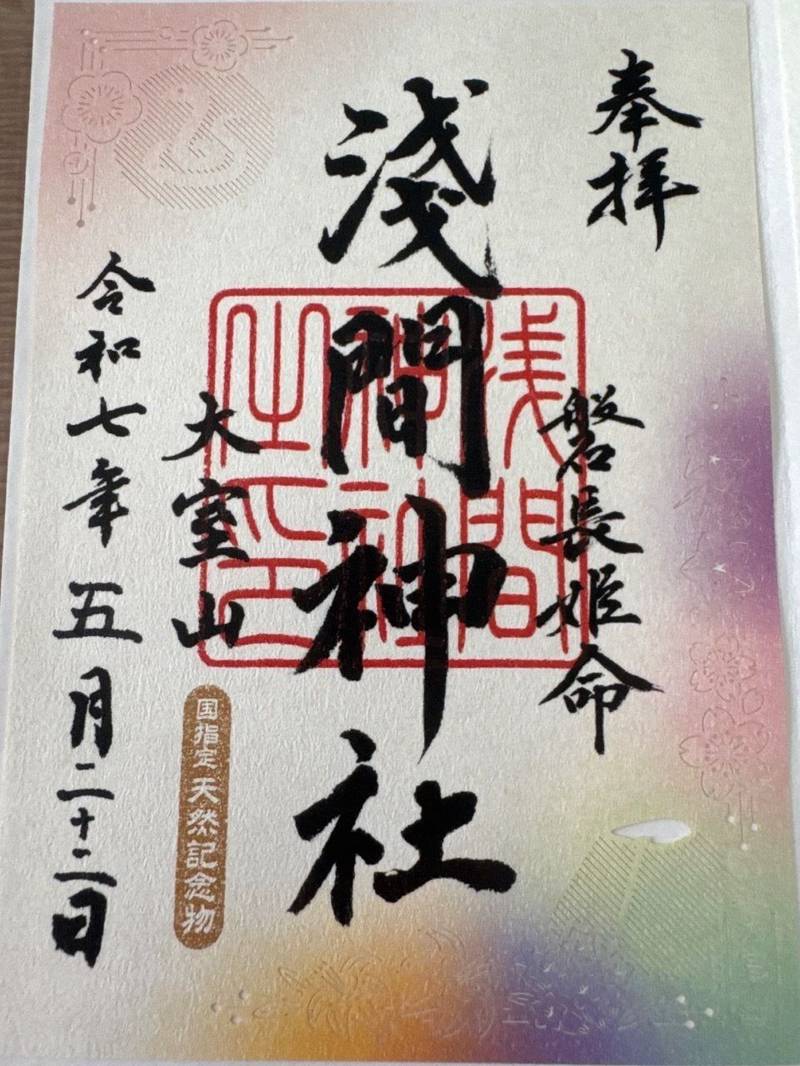 奉拝
磐長姫命
淺間神社
浅間神社之印
大室山
国指定天然記念物
令和七年五月二十二日